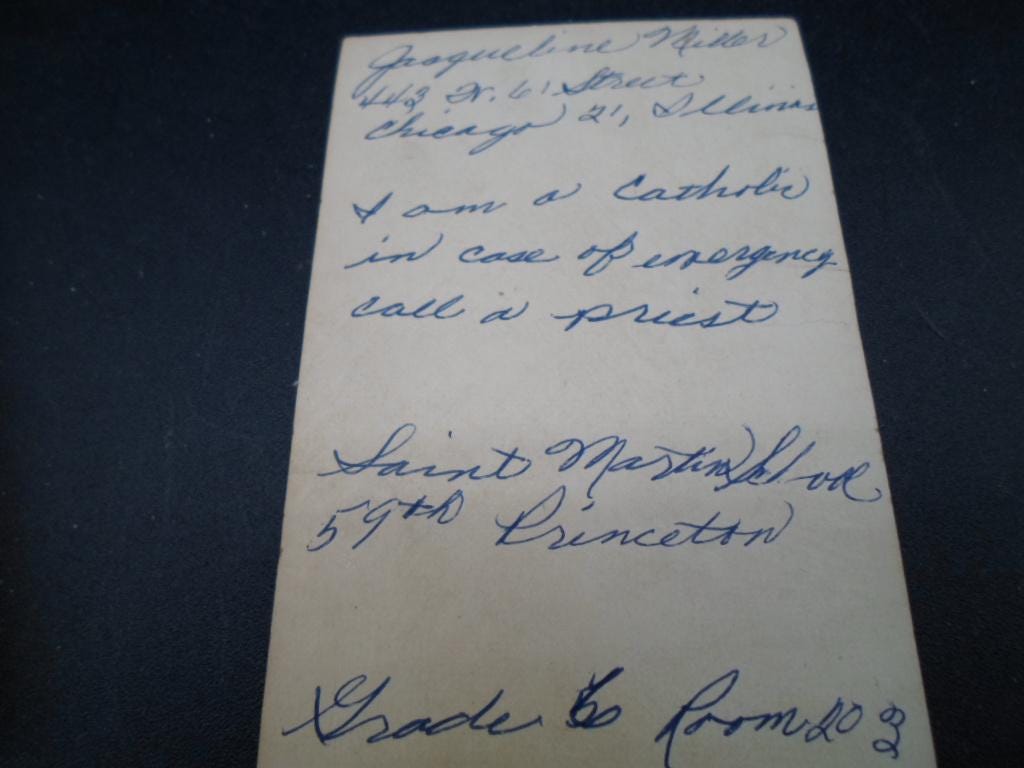 Jaqueline Miller
443 W. 61 Street
Chicago 21, Illinois
I am a Catholic
in case of emergency
call a priest
Saint Martin School
59th Princeton
Grade 6 Room 203